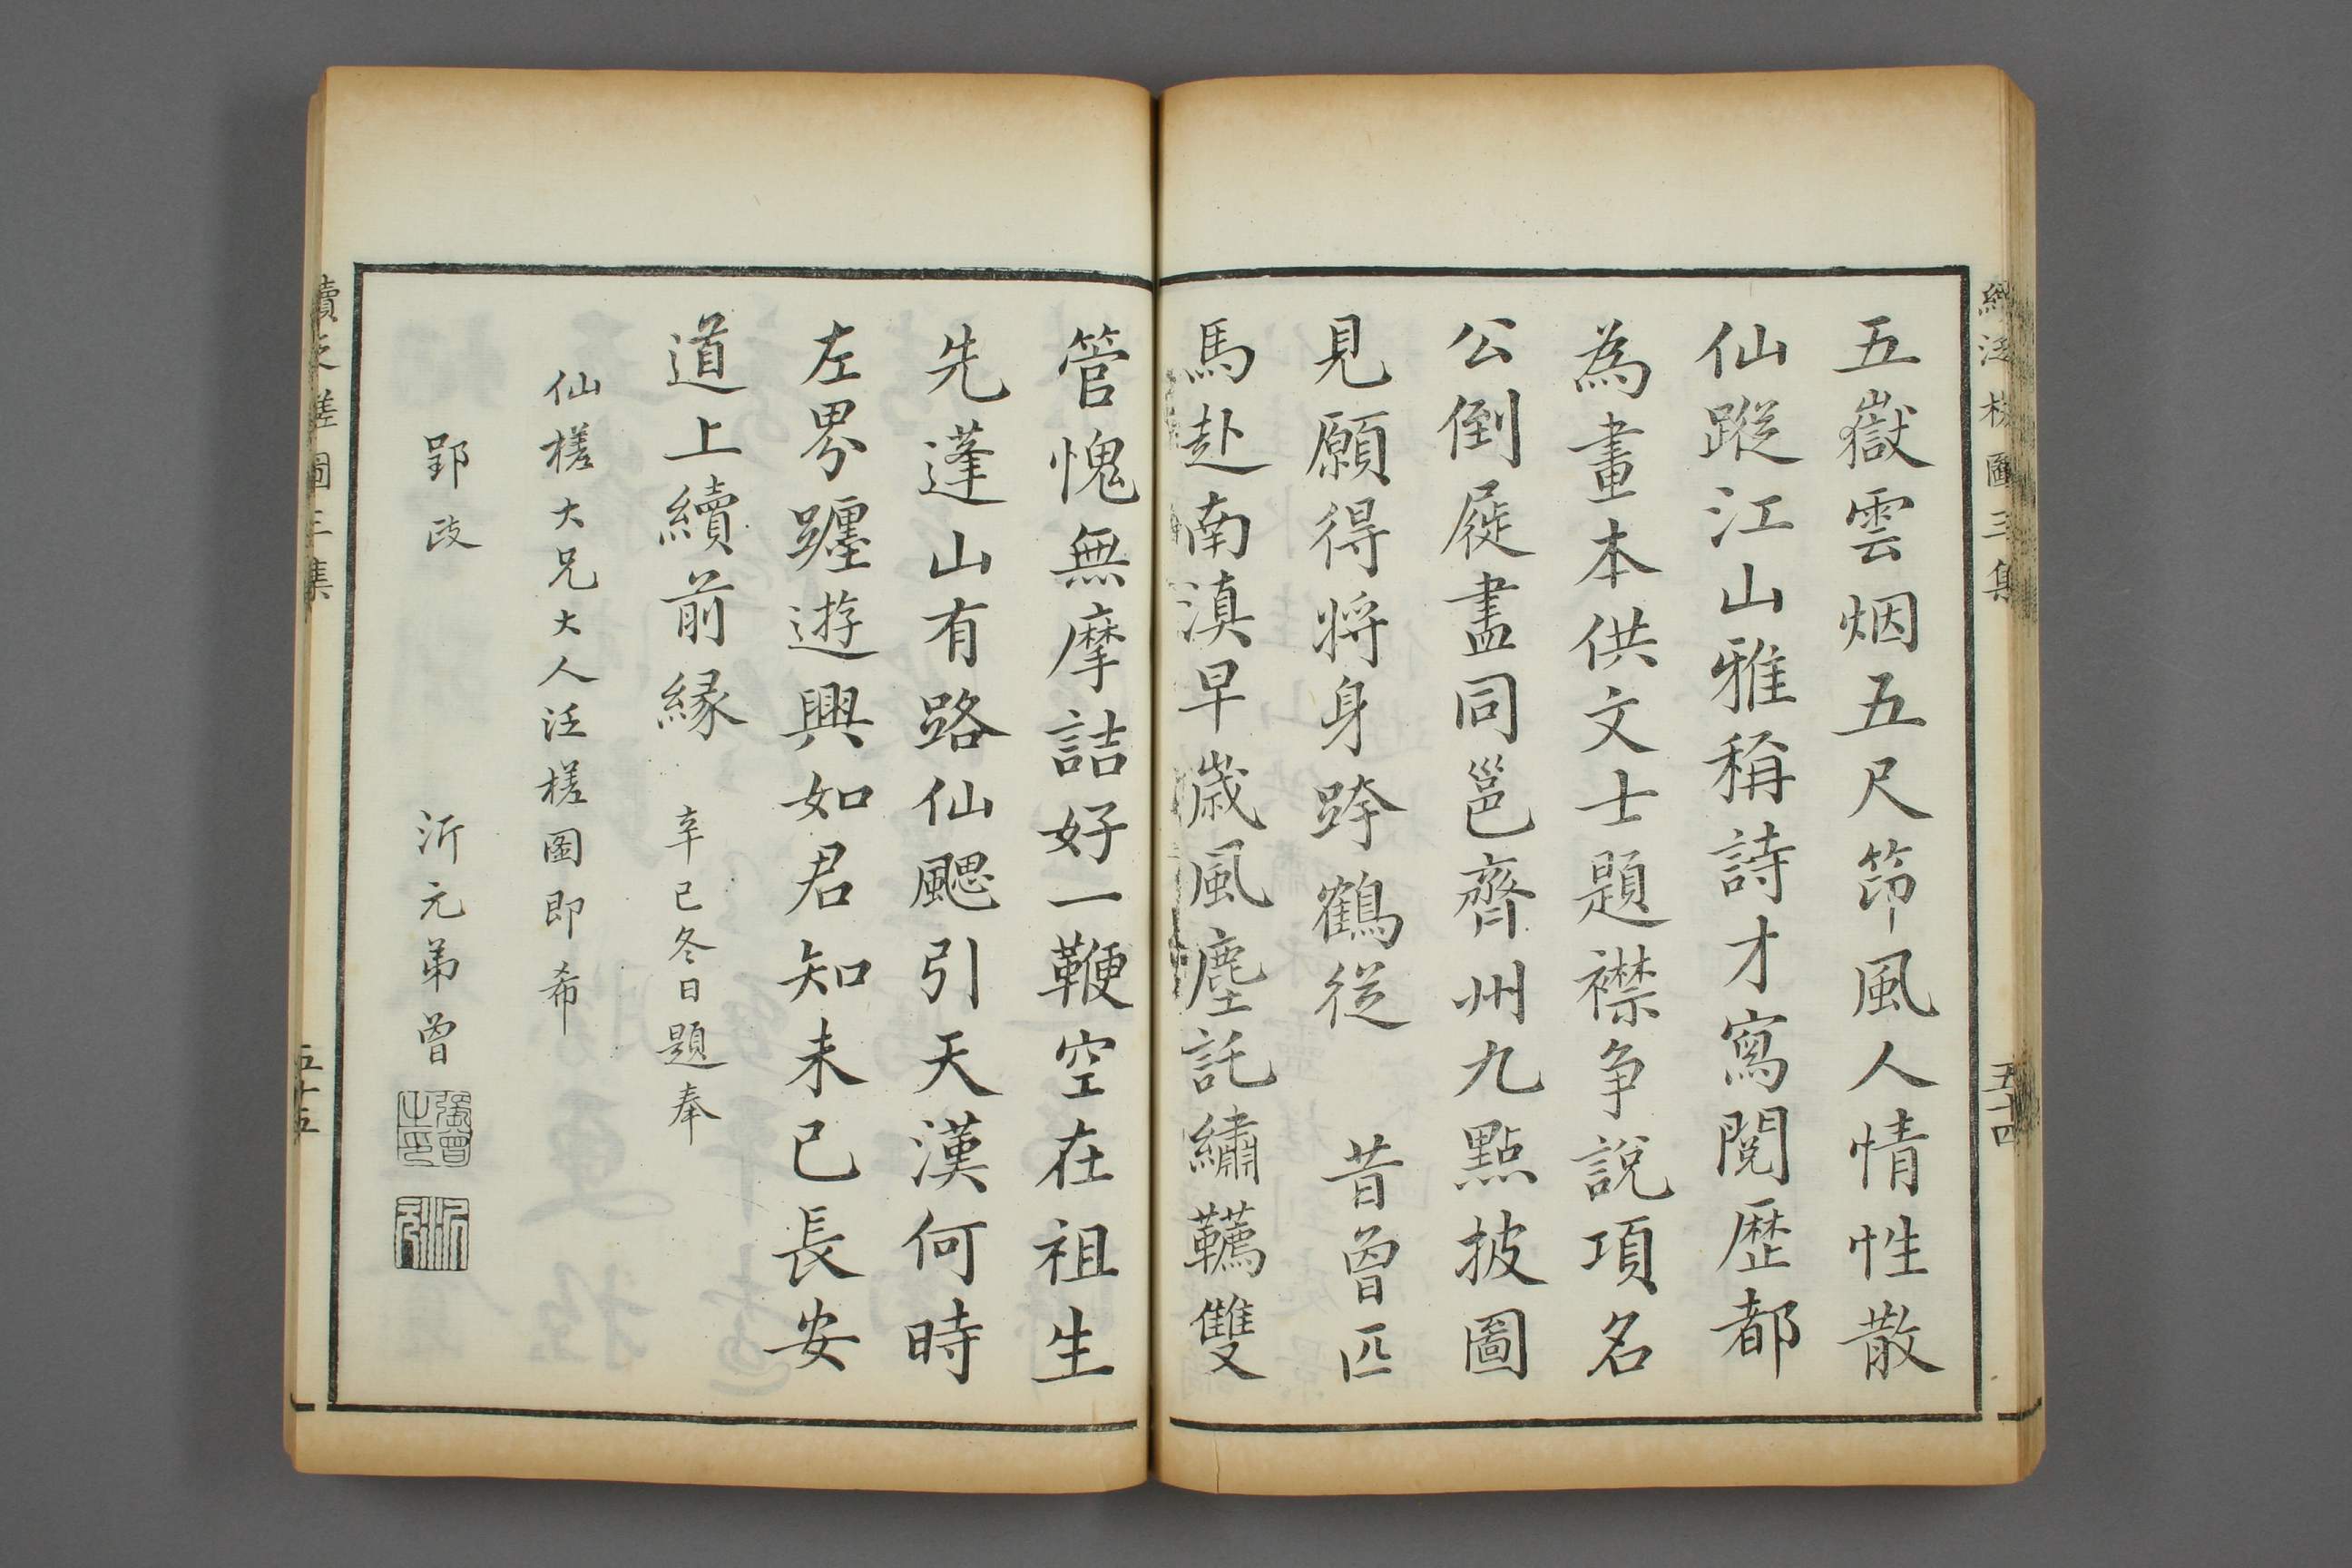 續泛槎圖三集
五十四
五嶽雲烟五尺筇風人情性散
仙蹤江山雅稱詩才寫閱歷都
為畫本供文士題襟争說項名
公倒屣盡同邕齊州九點披圖
見願得將身跨鶴從 昔曾匹
馬赴南滇早歲風塵託繡韉雙
管愧無摩詰好一鞭空在祖生
先蓬山有路仙颸引天漢何時
左界躔遊興如君知未已長安
道上續前緣 辛巳冬日題奉
仙槎大兄大人泛槎圖即希
郢政 沂元弟曾
張曾之印
續泛槎圖三集
五十五